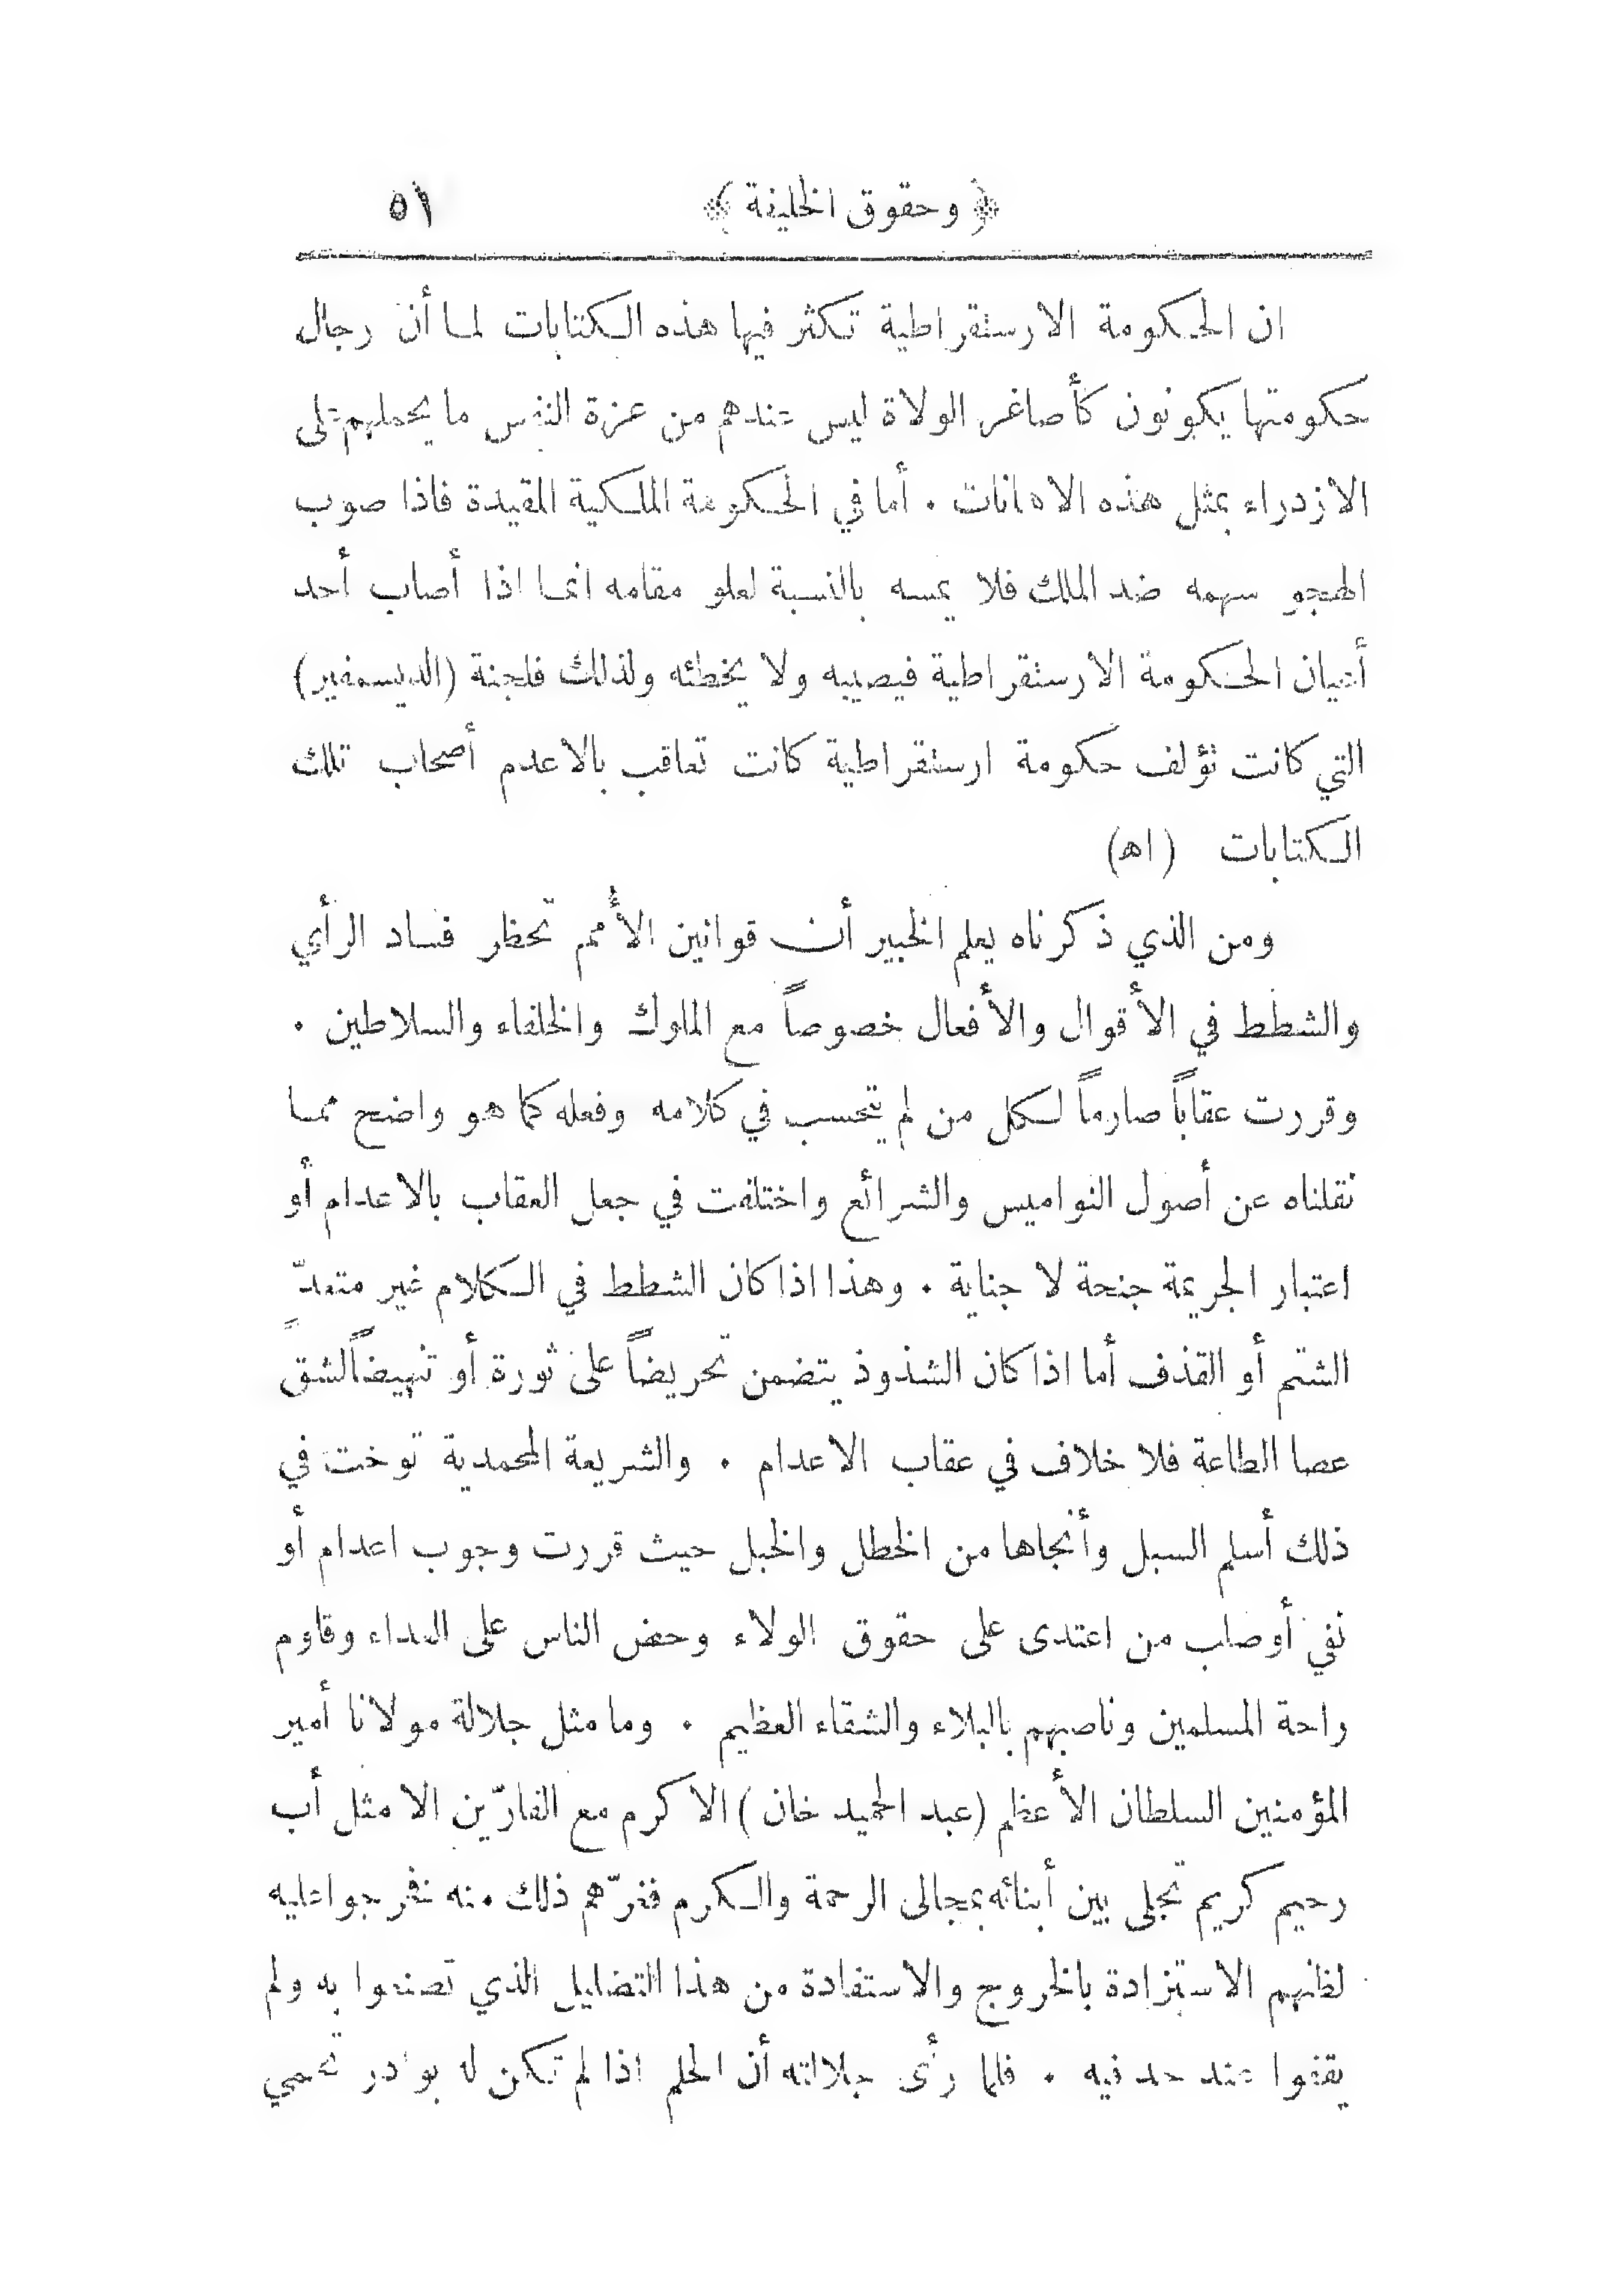 ﴿ وحقوق الخليفة ﴾ ٥١
ان الحكومة الارستقراطية تكثر فيها هذه الكتابات لما أن رجال
حكومتها يكونون كأصاغر الولاة ليس عندهم من عزة النفس ما يحملهم على
الازدراء بمثل هذه الاهانات . أما في الحكومة الملكية المقيدة فاذا صوب
الهجو سهمه ضد الملك فلا يمسه بالنسبة لعلو مقامه انما اذا أصاب أحد
أعيان الحكومة الارستقراطية فيصيبه ولا يخطئه ولذلك فلجنة (الديسمفير)
التي كانت تؤلف حكومة ارستقراطية كانت تعاقب بالاعدم أصحاب تلك
الكتابات (اه)
ومن الذي ذكرناه يعلم الخبير أن قوانين الأمم تحظر فساد الرأي
والشطط في الأقوال والأفعال خصوصاً مع الملوك والخلفاء والسلاطين .
وقررت عقاباً صارماً لكل من لم يتحسب في كلامه وفعله كما هو واضح مما
نقلناه عن أصول النواميس والشرائع واختلفت في جعل العقاب بالاعدام أو
اعتبار الجريمة جنحة لا جناية . وهذا اذا كان الشطط في الكلام غير متعدٍّ
الشتم أو القذف أما اذا كان الشذوذ يتضمن تحريضاً على ثورة أو تهييضاً لشق
عصا الطاعة فلا خلاف في عقاب الاعدام . والشريعة المحمدية توخت في
ذلك أسلم السبل وأنجاها من الخطل والخبل حيث قررت وجوب اعدام أو
نفي أو صلب من اعتدى على حقوق الولاء وحض الناس على العداء وقاوم
راحة المسلمين وناصبهم بالبلاء والشقاء العظيم . وما مثل جلالة مولانا أمير
المؤمنين السلطان الأعظم (عبد الحميد خان) الاكرم مع الفارّين الا مثل أب
رحيم كريم تجلى بين أبنائه بمجالى الرحمة والكرم فغرّهم ذلك منه فخرجوا عليه
لظنهم الاستزادة بالخروج والاستفادة من هذا التضليل الذي تصنعوا به ولم
يقفوا عند حد فيه . فلما رأى جلالته أن الحلم اذا لم تكن له بوادر تحمي